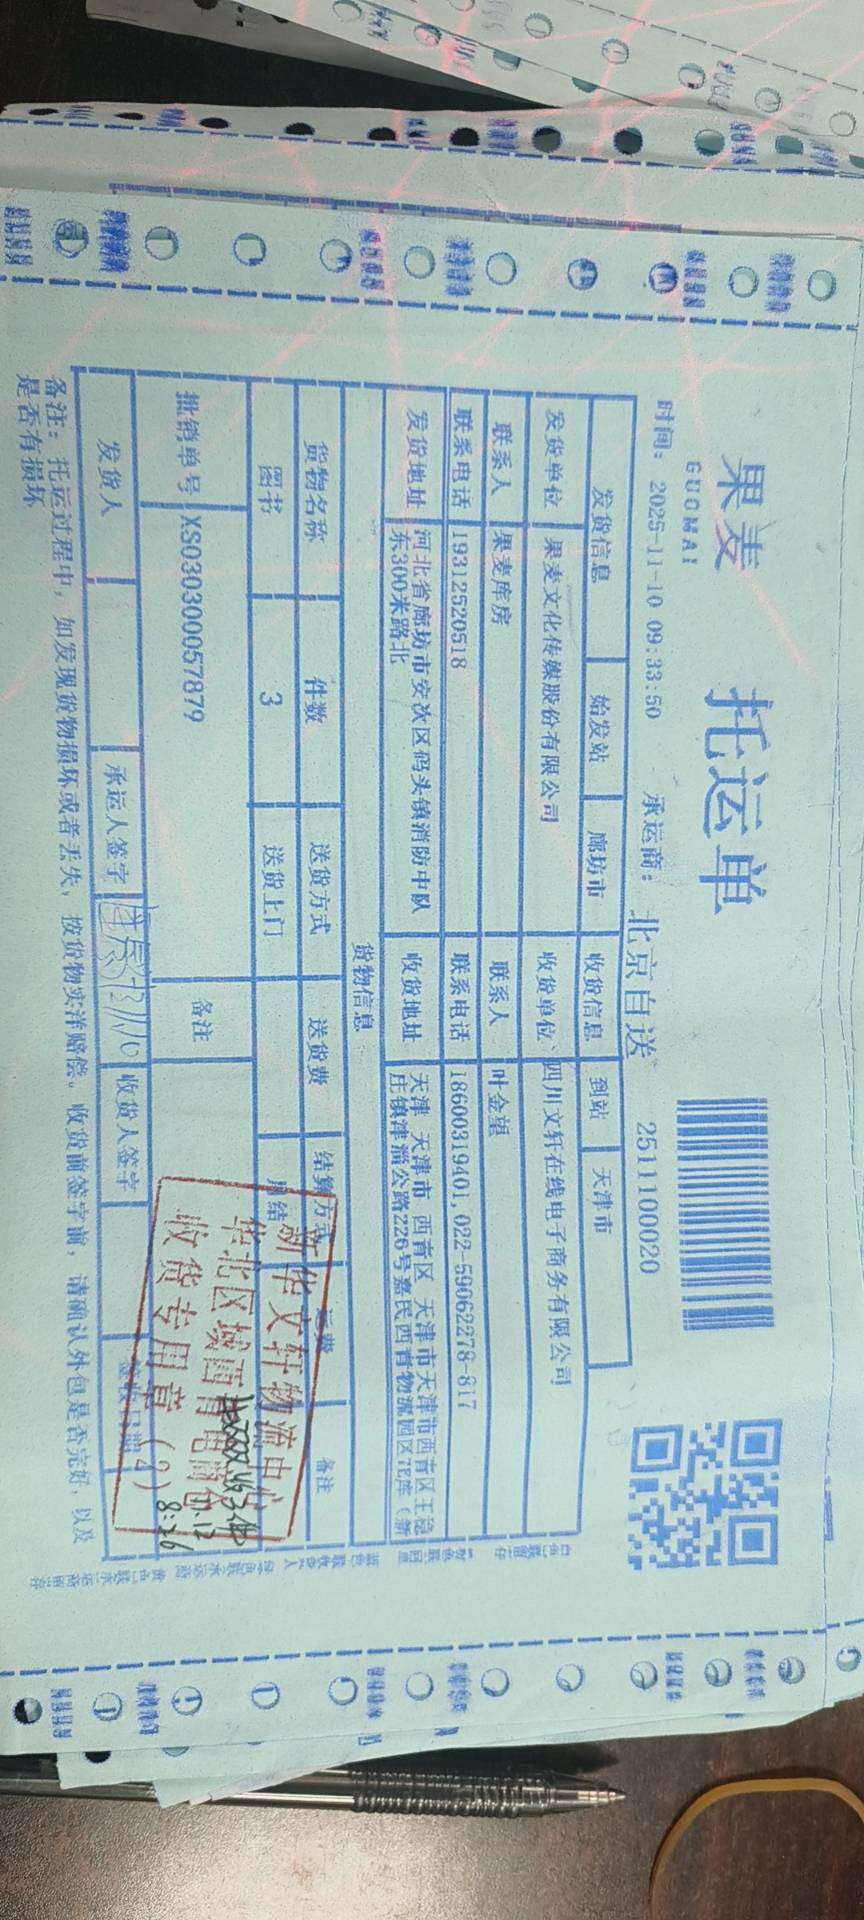 果麦
GUOMAI
托运单
时间：2025-11-10 09:33:50 承运商：北京自送 2511100020
发货信息 始发站 廊坊市 收货信息 到站 天津市
发货单位 果麦文化传媒股份有限公司 收货单位 四川文轩在线电子商务有限公司
联系人 果麦库房 联系人 叶金望
联系电话 19312520518 联系电话 18600319401,022-59062278-817
发货地址 河北省廊坊市安次区码头镇消防中队东300米路北 收货地址 天津 天津市 西青区 天津市天津市西青区王稳庄镇津淄公路226号嘉民西青物流园区
货物信息
货物名称 件数 送货方式 送货费 结算方式 运费 备注
图书 3 送货上门 月结
批销单号 XS030300057879 备注
发货人 承运人签字 收货人签字 签收日期
新华文轩物流中心
华北区域西青电商仓
收货专用章（2）
11.12
8:26
备注：托运过程中，如发现货物损坏或者丢失，按货物实洋赔偿。收货前签字前，请确认外包是否完好，以及
是否有损坏